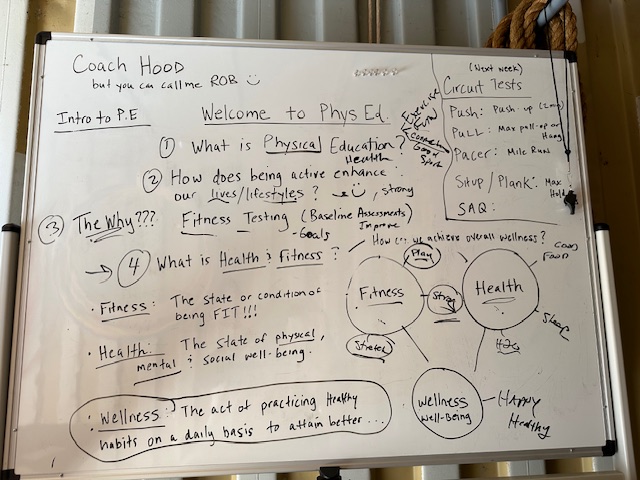 Coach Hood
but you can call me ROB
Intro to P.E
Welcome to Phys Ed.
① What is Physical Education?
Health
Exercise
Fun
Good
② How does being active enhance
our lives/lifestyles? strong
③ The Why??? Fitness Testing (Baseline Assessments)
-Goals Improve
④ What is Health & Fitness?
How can we achieve overall wellness?
· Fitness: The state or condition of
being FIT!!!
· Health: The state of physical,
mental & social well-being.
· Wellness: The act of practicing Healthy
habits on a daily basis to attain better...
(Next week)
Circuit Tests
Push: Push-up (2min)
Pull: Max pull-up or
Hang
Pacer: Mile Run
Situp/Plank: Max
Hold
SAQ:
Play
Fitness
Stretch
Health
Good
Food
Sleep
H2O
Wellness
Well-Being
Happy
Healthy